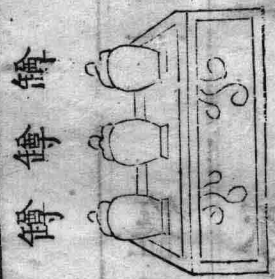 罇
罇
罇